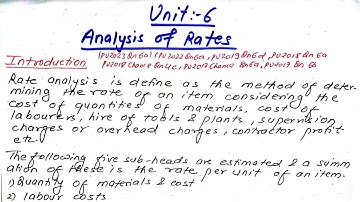 Unit:-6
Analysis of Rates
(PU2023 Qn6a) (PU2022 Qn6a, PU2019 Qn6d, PU2018 Qn 6a
Introduction PU2018 Chance Qn4c, PU2017 Chance Qn6a, PU2017 Qn 6b
Rate analysis is define as the method of deter-
mining the rate of an item considering the
cost of quantities of materials, cost of
labourers, hire of tools & plants, supervision
charges or overhead charges, contractor profit
etc.
The following five sub-heads are estimated & a summ
ation of these is the rate per unit of an item.
1) Quantity of materials & cost
2) labour costs